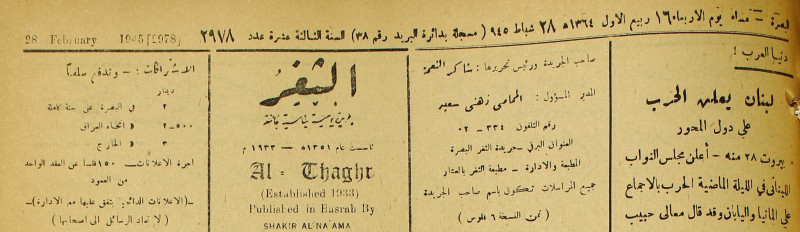 البصرة - مساء يوم الاربعاء ١٦ ربيع الاول ١٣٦٤هـ ٢٨ شباط ٩٤٥ ( مسجلة بدائرة البريد رقم ٣٨) السنة الثالثة عشرة عدد ٢٩٧٨
28 February 1945 [2978]
دنيا العرب !
لبنان يعلن الحرب
على دول المحور
بيروت ٢٨ منه - أعلن مجلس النواب
اللبناني في الليلة الماضية الحرب بالاجماع
على المانيا واليابان وقد قال معالي حبيب
صاحب الجريدة ورئيس تحريرها : شاكر النعمة
المدير المسؤول : المحامي زهني سعيد
رقم التلفون ٣٣٤ - ٠٢
العنوان البرقي - جريدة الثغر البصرة
المطبعة والادارة - مطبعة الثغر بالعشار
جميع المراسلات تكون باسم صاحب الجريدة
( ثمن النسخة ٦ فلوس )
الثغر
جريدة يومية سياسية جامعة
تأسست عام ١٣٥١هـ - ١٩٣٣ م
Al - Thaghr
(Established 1933)
Published in Basrah By
SHAKIR AL NAAMA
الاشتراكات : - وتدفع سلفاً
دينار
٢ في البصرة عن سنة كاملة
٢-٥٠٠ » انحاء العراق
٣ » الخارج
اجرة الاعلانات - ١٥٠ فلساً عن العقد الواحد
من العمود
- (الاعلانات الدائمية يتفق عليها مع الادارة) -
( لا تعاد الرسائل الى اصحابها )